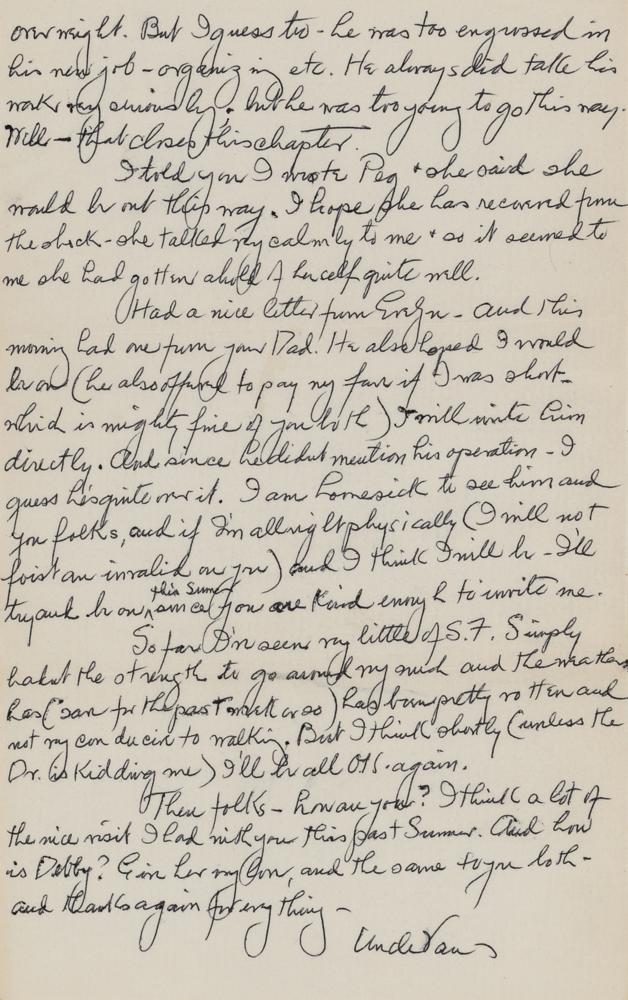 overweight. But I guess too - he was too engrossed in
his new job - organizing etc. He always did take his
work very seriously, but he was too young to go this way.
Well - that closes this chapter.
I told you I wrote Peg + she said she
would be out this way. I hope she has recovered from
the shock - she talked very calmly to me + so it seemed to
me she had gotten ahold of herself quite well.
Had a nice letter from Evelyn - and this
morning had one from your Dad. He also hoped I would
be on (he also offered to pay my fare if I was short -
which is mighty fine of you both) I will write him
directly. And since he didnt mention his operation - I
guess he's quite over it. I am homesick to see him and
you folks, and if I'm all right physically (I will not
foist an invalid on you) and I think I will be - I'll
try and be on this Summer since you are kind enough to invite me.
So far I've seen very little of S.F. Simply
hadn't the strength to go around very much and the weather
has (save for the past week or so) has been pretty rotten and
not very conducive to walking. But I think shortly (unless the
Dr. is kidding me) I'll be all OK. again.
Then folks - how are you? I think a lot of
the nice visit I had with you this past Summer. And how
is Debby? Give her my love, and the same to you both -
and thanks again for everything -
Uncle Van